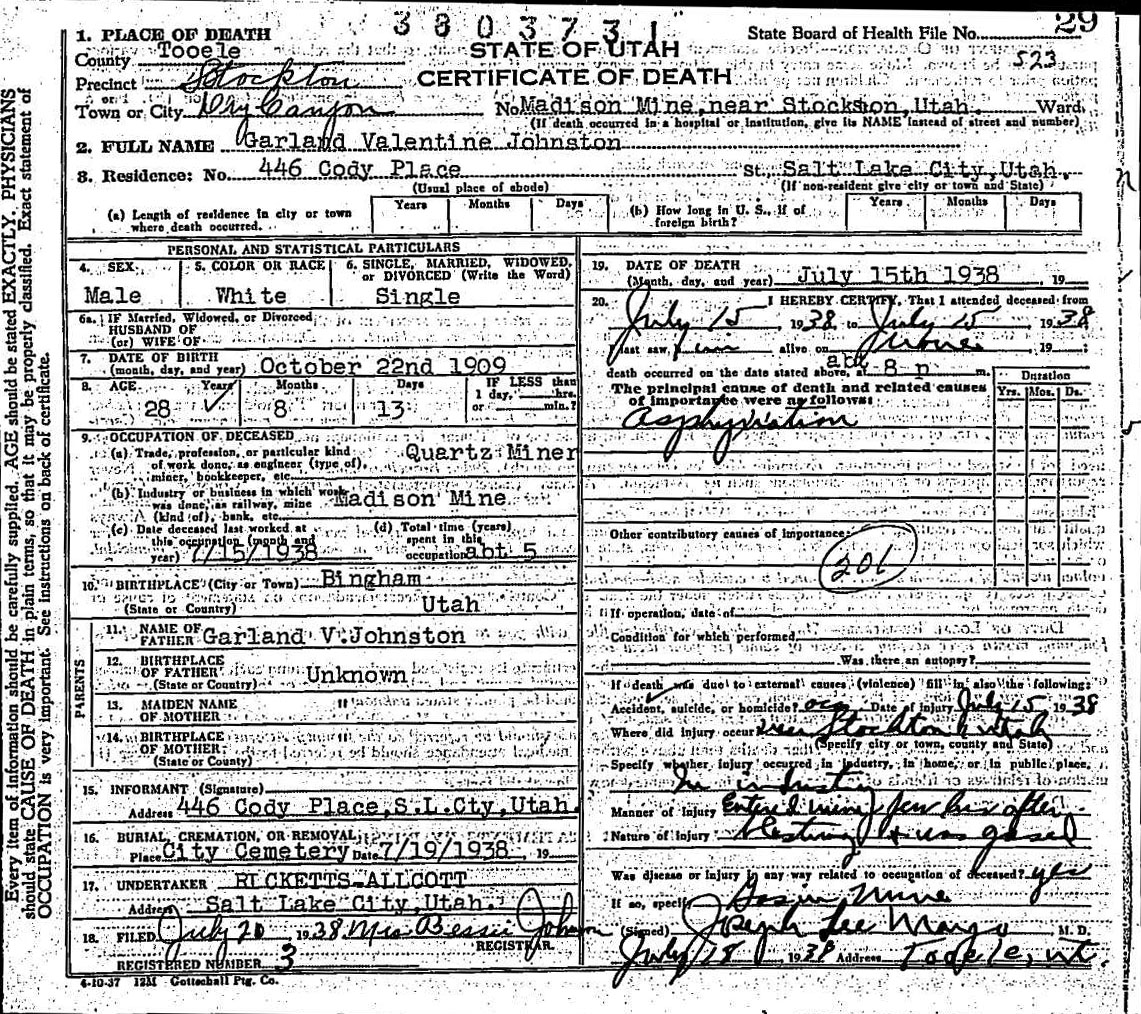 380371
29
State Board of Health File No.
523
1. PLACE OF DEATH
County Tooele
STATE OF UTAH
Precinct Stockton
CERTIFICATE OF DEATH
Town or City Dry Canyon No. Madison Mine, near Stockson, Utah. Ward.
(If death occurred in a hospital or institution, give its NAME instead of street and number)
2. FULL NAME Garland Valentine Johnston
3. Residence: No. 446 Cody Place St., Salt Lake City, Utah.
(Usual place of abode) (If non-resident give city or town and State)
(a) Length of residence in city or town where death occurred. Years Months Days
(b) How long in U. S., if of foreign birth? Years Months Days
PERSONAL AND STATISTICAL PARTICULARS
4. SEX Male
5. COLOR OR RACE White
6. SINGLE, MARRIED, WIDOWED, or DIVORCED (Write the Word) Single
6a. IF Married, Widowed, or Divorced
HUSBAND OF
(or) WIFE OF
7. DATE OF BIRTH
(month, day, and year) October 22nd 1909
8. AGE Years Months Days IF LESS than
1 day, hrs.
or min.?
28 8 13
9. OCCUPATION OF DECEASED
(a) Trade, profession, or particular kind of work done, as engineer (type of), miner, bookkeeper, etc. Quartz Miner
(b) Industry or business in which work was done, as railway, mine (kind of), bank, etc. Madison Mine
(c) Date deceased last worked at this occupation (month and year) 7/15/1938
(d) Total time (years) spent in this occupation abt 5
10. BIRTHPLACE (City or Town) Bingham
(State or Country) Utah
PARENTS
11. NAME OF FATHER Garland V. Johnston
12. BIRTHPLACE OF FATHER Unknown
(State or Country)
13. MAIDEN NAME OF MOTHER "
14. BIRTHPLACE OF MOTHER "
(State or Country)
15. INFORMANT (Signature)
Address 446 Cody Place, S.L.Cty, Utah.
16. BURIAL, CREMATION, OR REMOVAL
Place City Cemetery Date 7/19/1938, 19
17. UNDERTAKER RICKETTS-ALLCOTT
Address Salt Lake City, Utah.
18. FILED July 20 1938 Mrs Bessie Johnson
REGISTRAR.
REGISTERED NUMBER 3
4-10-37 12M Gottschall Ptg. Co.
19. DATE OF DEATH
(Month, day, and year) July 15th 1938 19
20. I HEREBY CERTIFY, That I attended deceased from
July 15 1938 to July 15 1938
I last saw him alive on 19
death occurred on the date stated above, at abt 8 p m.
The principal cause of death and related causes of importance were as follows:
Duration
Yrs. Mos. Ds.
Asphyxiation
Other contributory causes of importance:
201
If operation, date of
Condition for which performed
Was there an autopsy?
If death was due to external causes (violence) fill in also the following:
Accident, suicide, or homicide? Date of injury July 15 1938
Where did injury occur near Stockton Utah
(Specify city or town, county and State)
Specify whether injury occurred in industry, in home, or in public place.
In industry
Manner of Injury Entered mine few hrs after
Nature of injury blasting & was gased
Was disease or injury in any way related to occupation of deceased? yes
If so, specify Gas in Mine
(Signed) Joseph Lee M. D.
July 18 1938 Address Tooele, Ut.
Every item of information should be carefully supplied. AGE should be stated EXACTLY. PHYSICIANS
should state CAUSE OF DEATH in plain terms, so that it may be properly classified. Exact statement of
OCCUPATION is very important. See instructions on back of certificate.